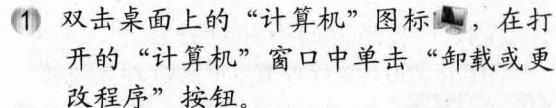 ① 双击桌面上的“计算机”图标，在打
开的“计算机”窗口中单击“卸载或更
改程序”按钮。